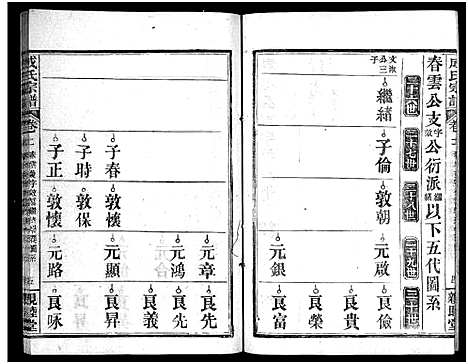 成氏宗譜
春雲公支字公衍派以下五代圖系
二十六世
二十七世
二十八世
二十九世
三十世
繼緒
子倫
敦朝
元啟 元銀
良儉 良貴 良榮 良富
親睦堂
子春 子時 子正
敦懷 敦保 敦懷
元章 元鴻 元顯 元路
良先 良義 良昇 良咏
成氏宗譜
親睦堂